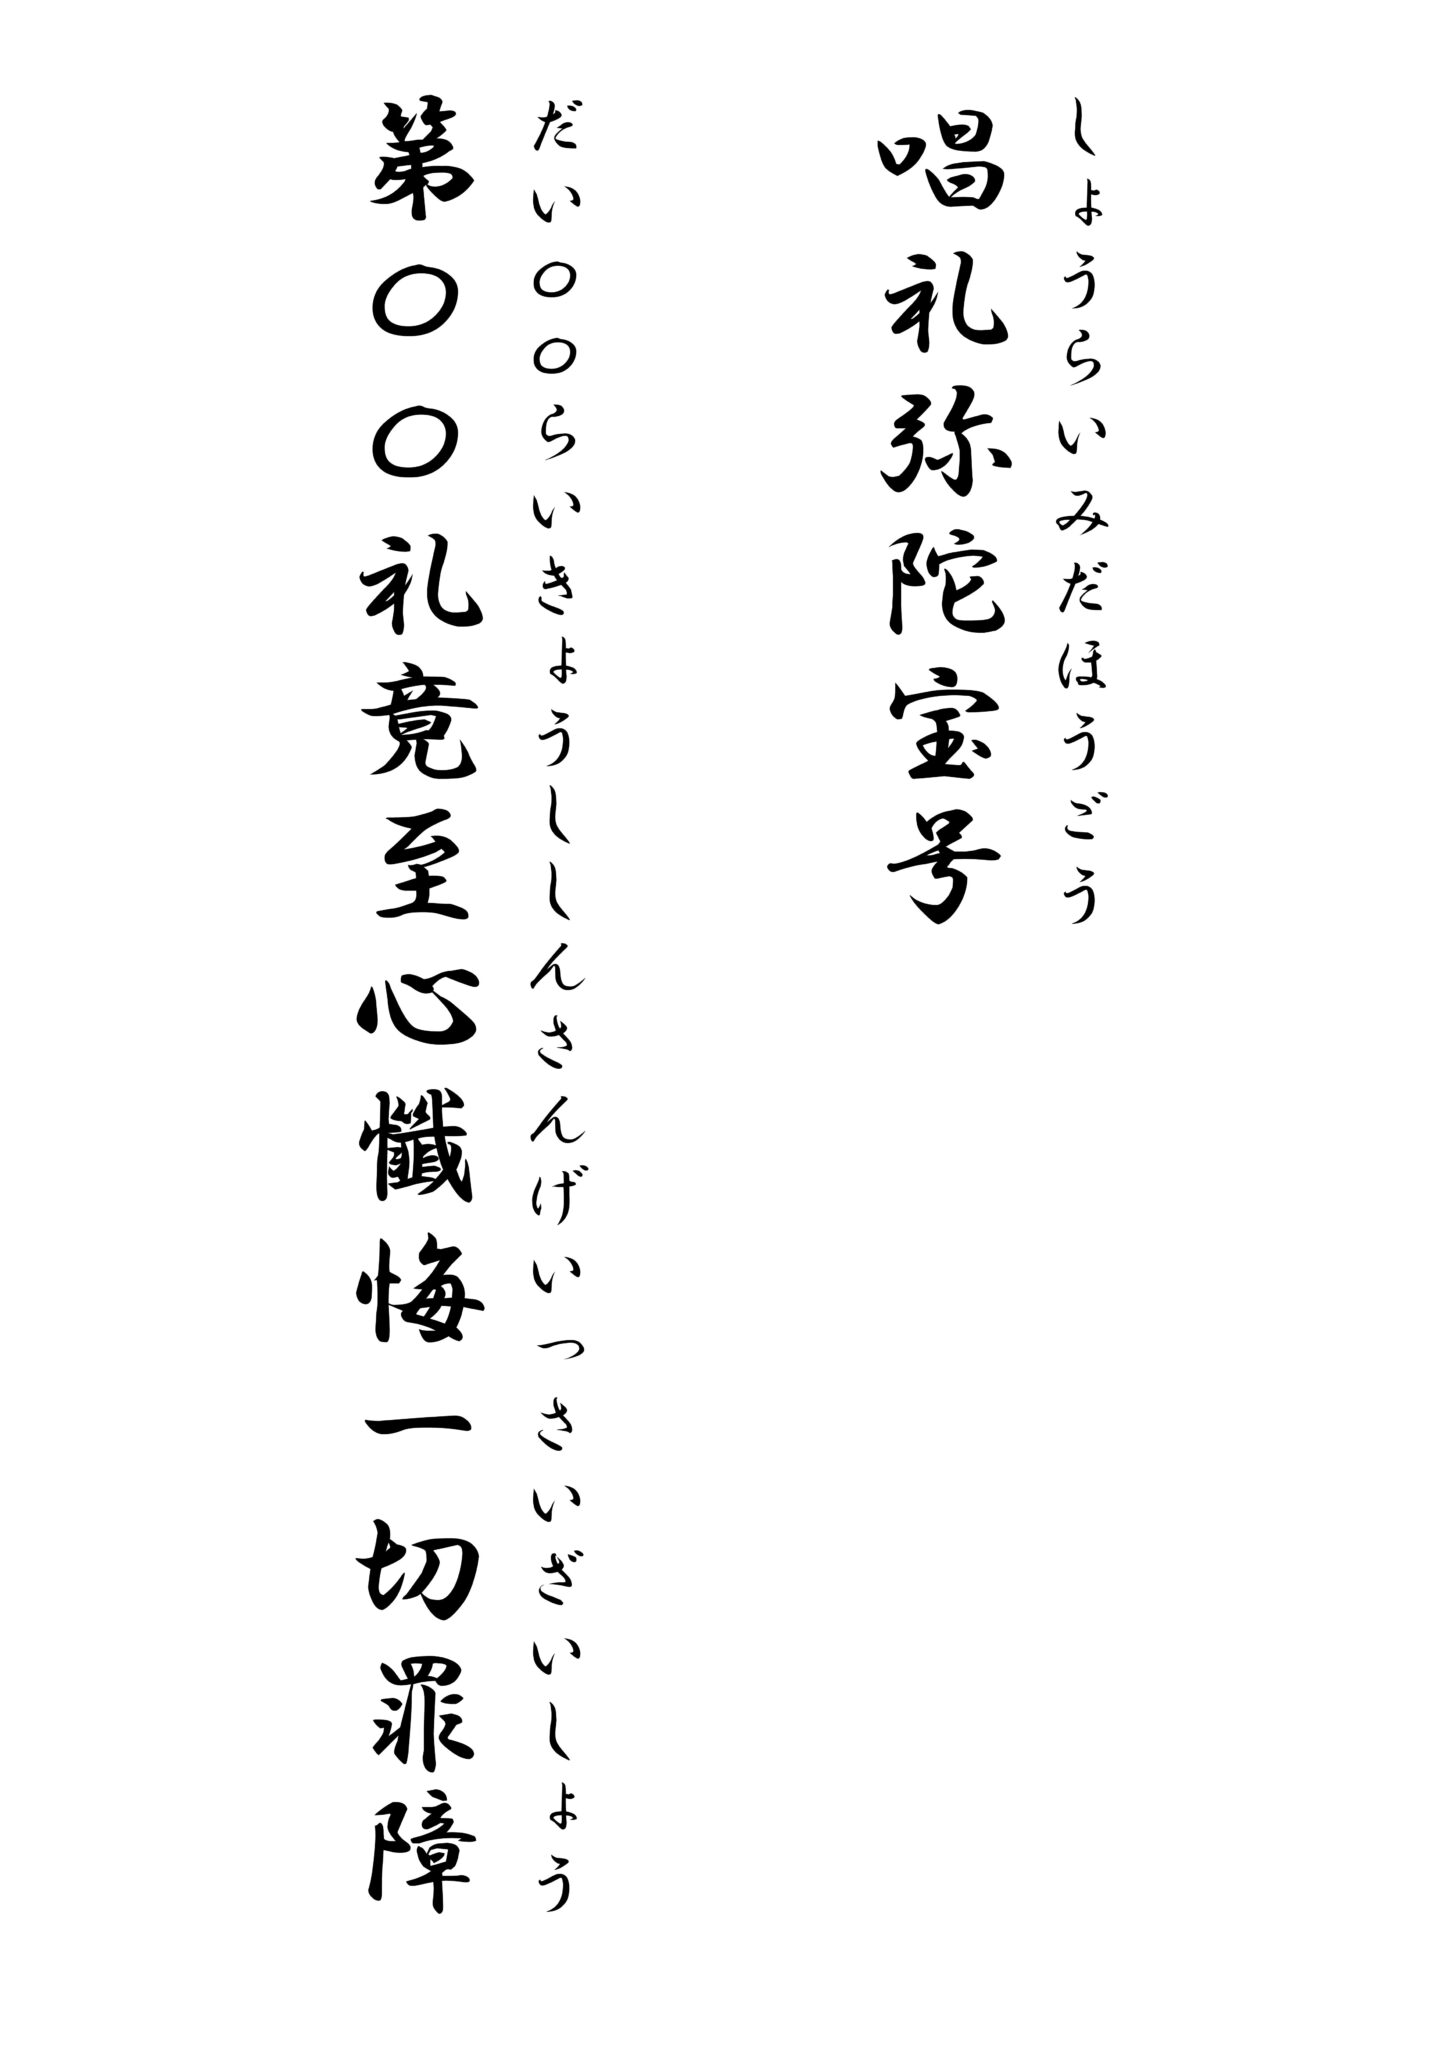 しょうらいみだほうごう
唱礼弥陀宝号
だい〇〇らいきょうししんさんげいっさいざいしょう
第〇〇礼竟至心懺悔一切罪障